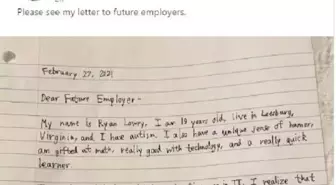 Please see my letter to future employers.
February 27, 2021
Dear Future Employer -
My name is Ryan Lowry, I am 19 years old, live in Leesburg,
Virginia, and I have autism. I also have a unique sense of humor,
am gifted at math, really good with technology, and a really quick
learner.
in IT. I realize that